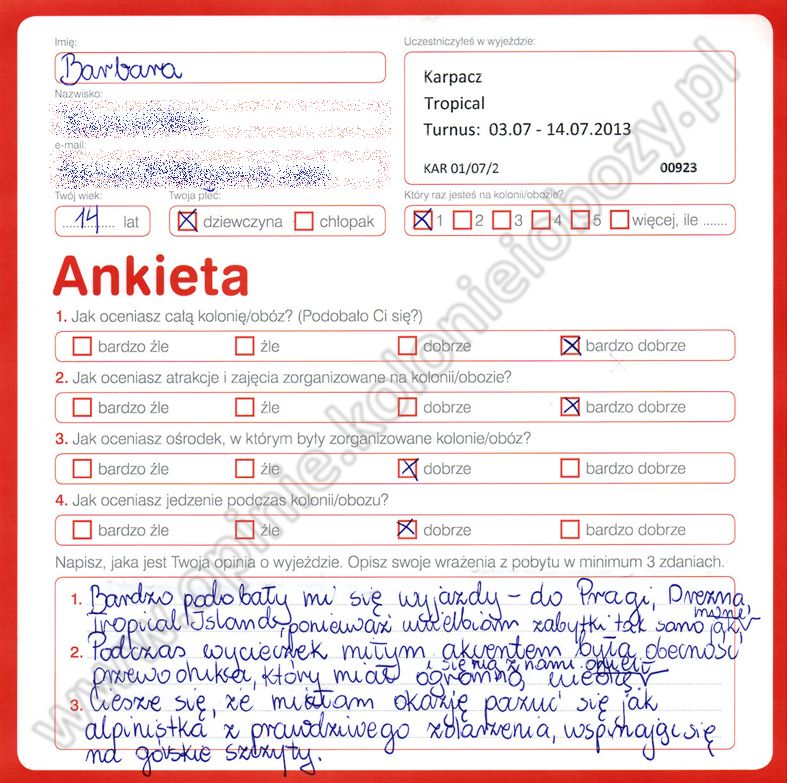 Imię:
Barbara
Uczestniczyłeś w wyjeździe:
Karpacz
Tropical
Turnus: 03.07 - 14.07.2013
KAR 01/07/2 00923
Nazwisko:
e-mail:
Twój wiek:
14 lat
Twoja płeć:
dziewczyna chłopak
Który raz jesteś na kolonii/obozie?
1 2 3 4 5 więcej, ile .......
Ankieta
1. Jak oceniasz całą kolonię/obóz? (Podobało Ci się?)
bardzo źle źle dobrze bardzo dobrze
2. Jak oceniasz atrakcje i zajęcia zorganizowane na kolonii/obozie?
bardzo źle źle dobrze bardzo dobrze
3. Jak oceniasz ośrodek, w którym były zorganizowane kolonie/obóz?
bardzo źle źle dobrze bardzo dobrze
4. Jak oceniasz jedzenie podczas kolonii/obozu?
bardzo źle źle dobrze bardzo dobrze
Napisz, jaka jest Twoja opinia o wyjeździe. Opisz swoje wrażenia z pobytu w minimum 3 zdaniach.
1. Bardzo podobały mi się wyjazdy - do Pragi, Drezna,
Tropical Island, ponieważ uwielbiam zabytki tak samo jak
2. Podczas wycieczek miłym akcentem była obecność
przewodnika, który miał ogromną wiedzę
i się nią z nami
3. Cieszę się, że miałam okazję poczuć się jak
alpinistka z prawdziwego zdarzenia, wspinając się
na górskie szczyty.
www.opinie.kolonieiobozy.pl